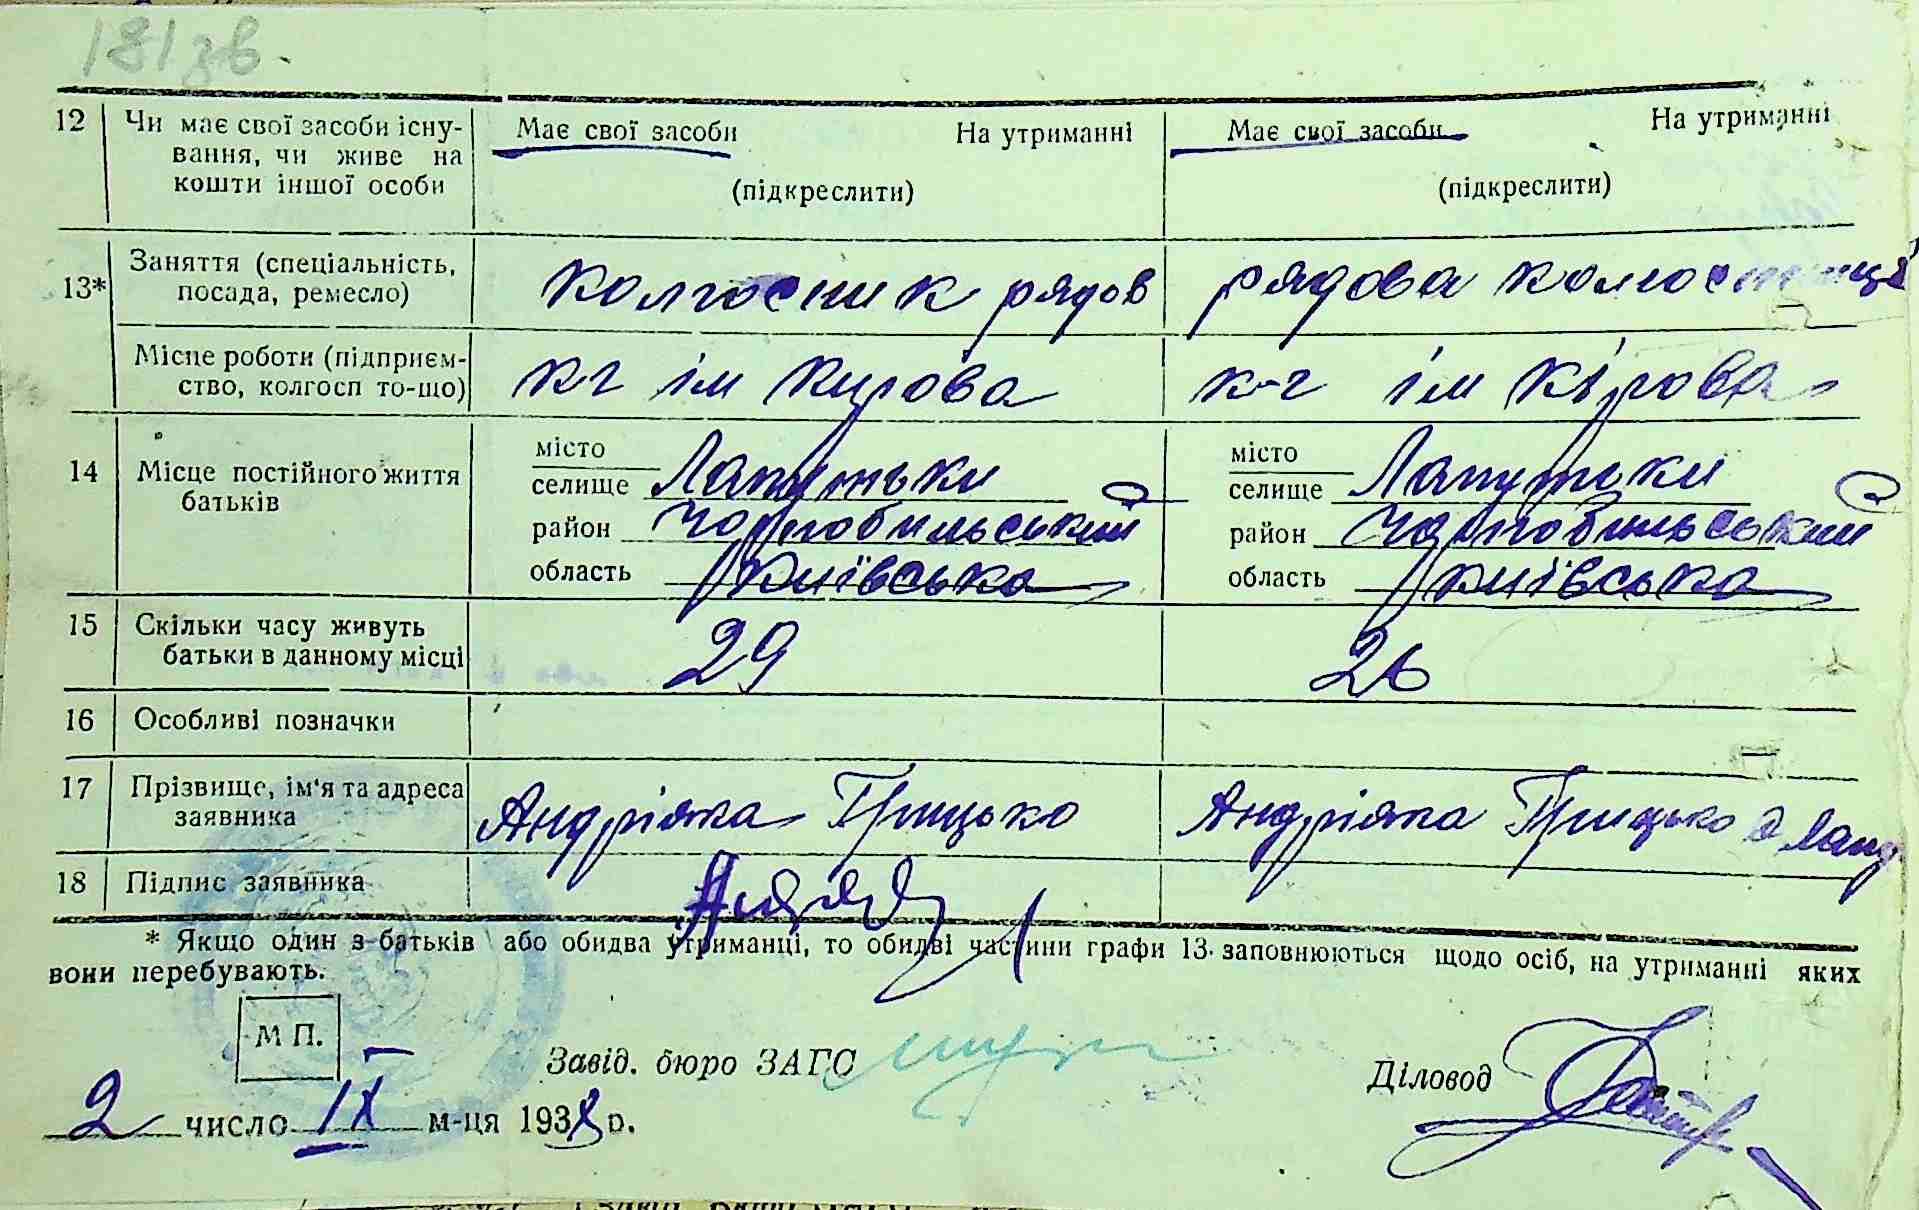 181 зв.
12 Чи має свої засоби існу- Має свої засоби На утриманні Має свої засоби На утриманні
вання, чи живе на
кошти іншої особи (підкреслити) (підкреслити)
13* Заняття (спеціальність, колгосник рядов рядова колгосниця
посада, ремесло)
Місце роботи (підприєм- к-г ім Кирова к-г ім Кірова
ство, колгосп то-що)
14 Місце постійного життя місто місто
батьків селище Лапутьки селище Лапутьки
район Чорнобильський район Чорнобильський
область Київська область Київська
15 Скільки часу живуть 29 26
батьки в данному місці
16 Особливі позначки
17 Прізвище, ім'я та адреса Андріяка Грицько Андріяка Грицько
заявника
18 Підпис заявника
* Якщо один з батьків або обидва утриманці, то обидві частини графи 13 заповнюються щодо осіб, на утриманні яких
вони перебувають.
М П.
Завід. бюро ЗАГС Діловод
2 число IX м-ця 1938 р.